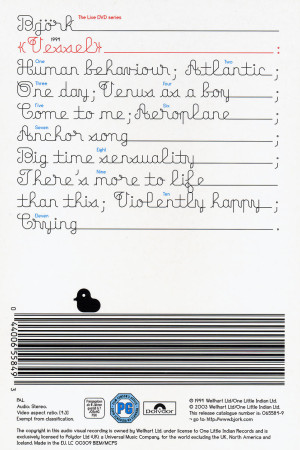 Björk The Live DVD series
《Vessel》 1994 ;
One Two
Human behaviour; Atlantic;
Three Four
One day; Venus as a boy ;
Five Six
Come to me; Aeroplane ;
Seven
Anchor song ;
Eight
Big time sensuality ;
Nine
There's more to life
Ten
than this; Violently happy ;
Eleven
Crying .
0 44006 55849 3
PAL.
Audio: Stereo.
Exempt from classification.
PG
Polydor
© 1994 Wellhart Ltd/One Little Indian Ltd.
© 2003 Wellhart Ltd/One Little Indian Ltd.
This release catalogue number is: 065584-9
go to: http://www.bjork.com
The copyright in this audio visual recording is owned by Wellhart Ltd. under license to One Little Indian Records and is
exclusively licensed to Polydor Ltd (UK) a Universal Music Company, for the world excluding the UK, North America and
Iceland. Made in the E.U. LC